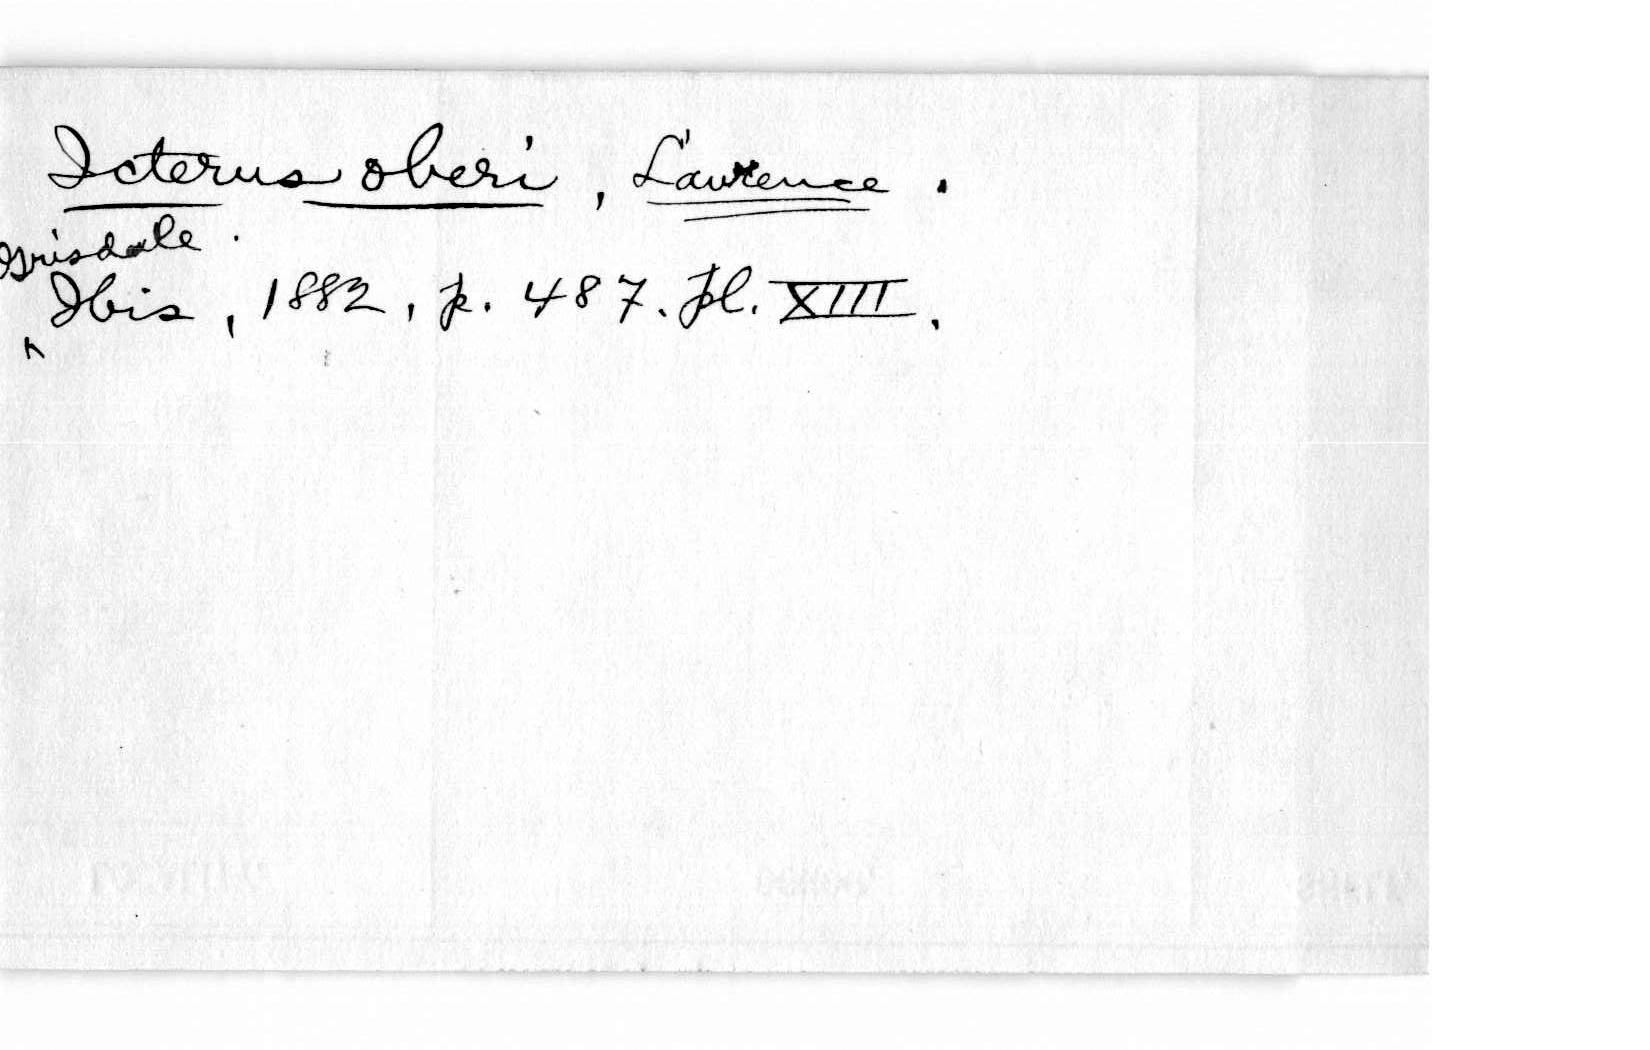 Icterus oberi, Lawrence.
Grisdale.
Ibis, 1882, p. 487. pl. XIII.